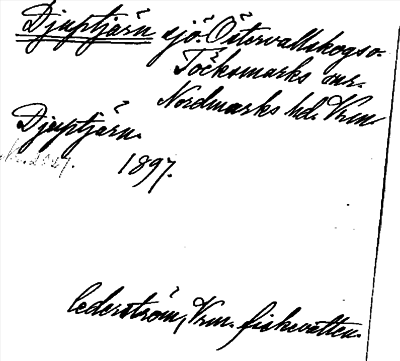 Djuptjärn sjö. Östervallskogs o.
Töcksmarks snr.
Nordmarks hd. Vrm
Djuptjärn.
1897.
Cederström, Vrm. fiskevatten.